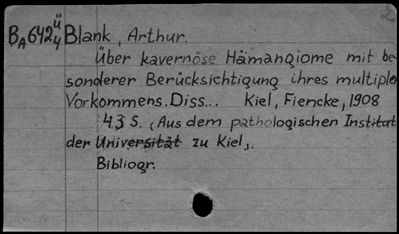 BA642ü4 Blank, Arthur.
Über kavernöse Hämangiome mit be-
sonderer Berücksichtigung ihres multiplen
Vorkommens. Diss... Kiel, Fiencke, 1908
43 S. (Aus dem pathologischen Institut
der Universität zu Kiel).
Bibliogr.